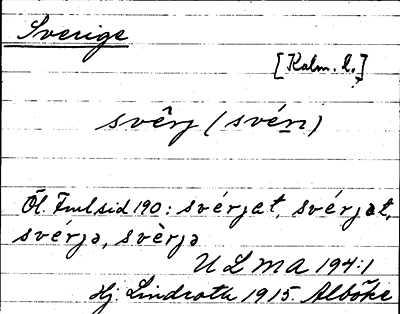 Sverige
[Kalm. l.]
svêrj (svéri)
Öl. Fmlsid 190: svérjat, svérjət,
svérjə, svèrjə
ULMA 194:1
Hj. Lindroth 1915. Alböke